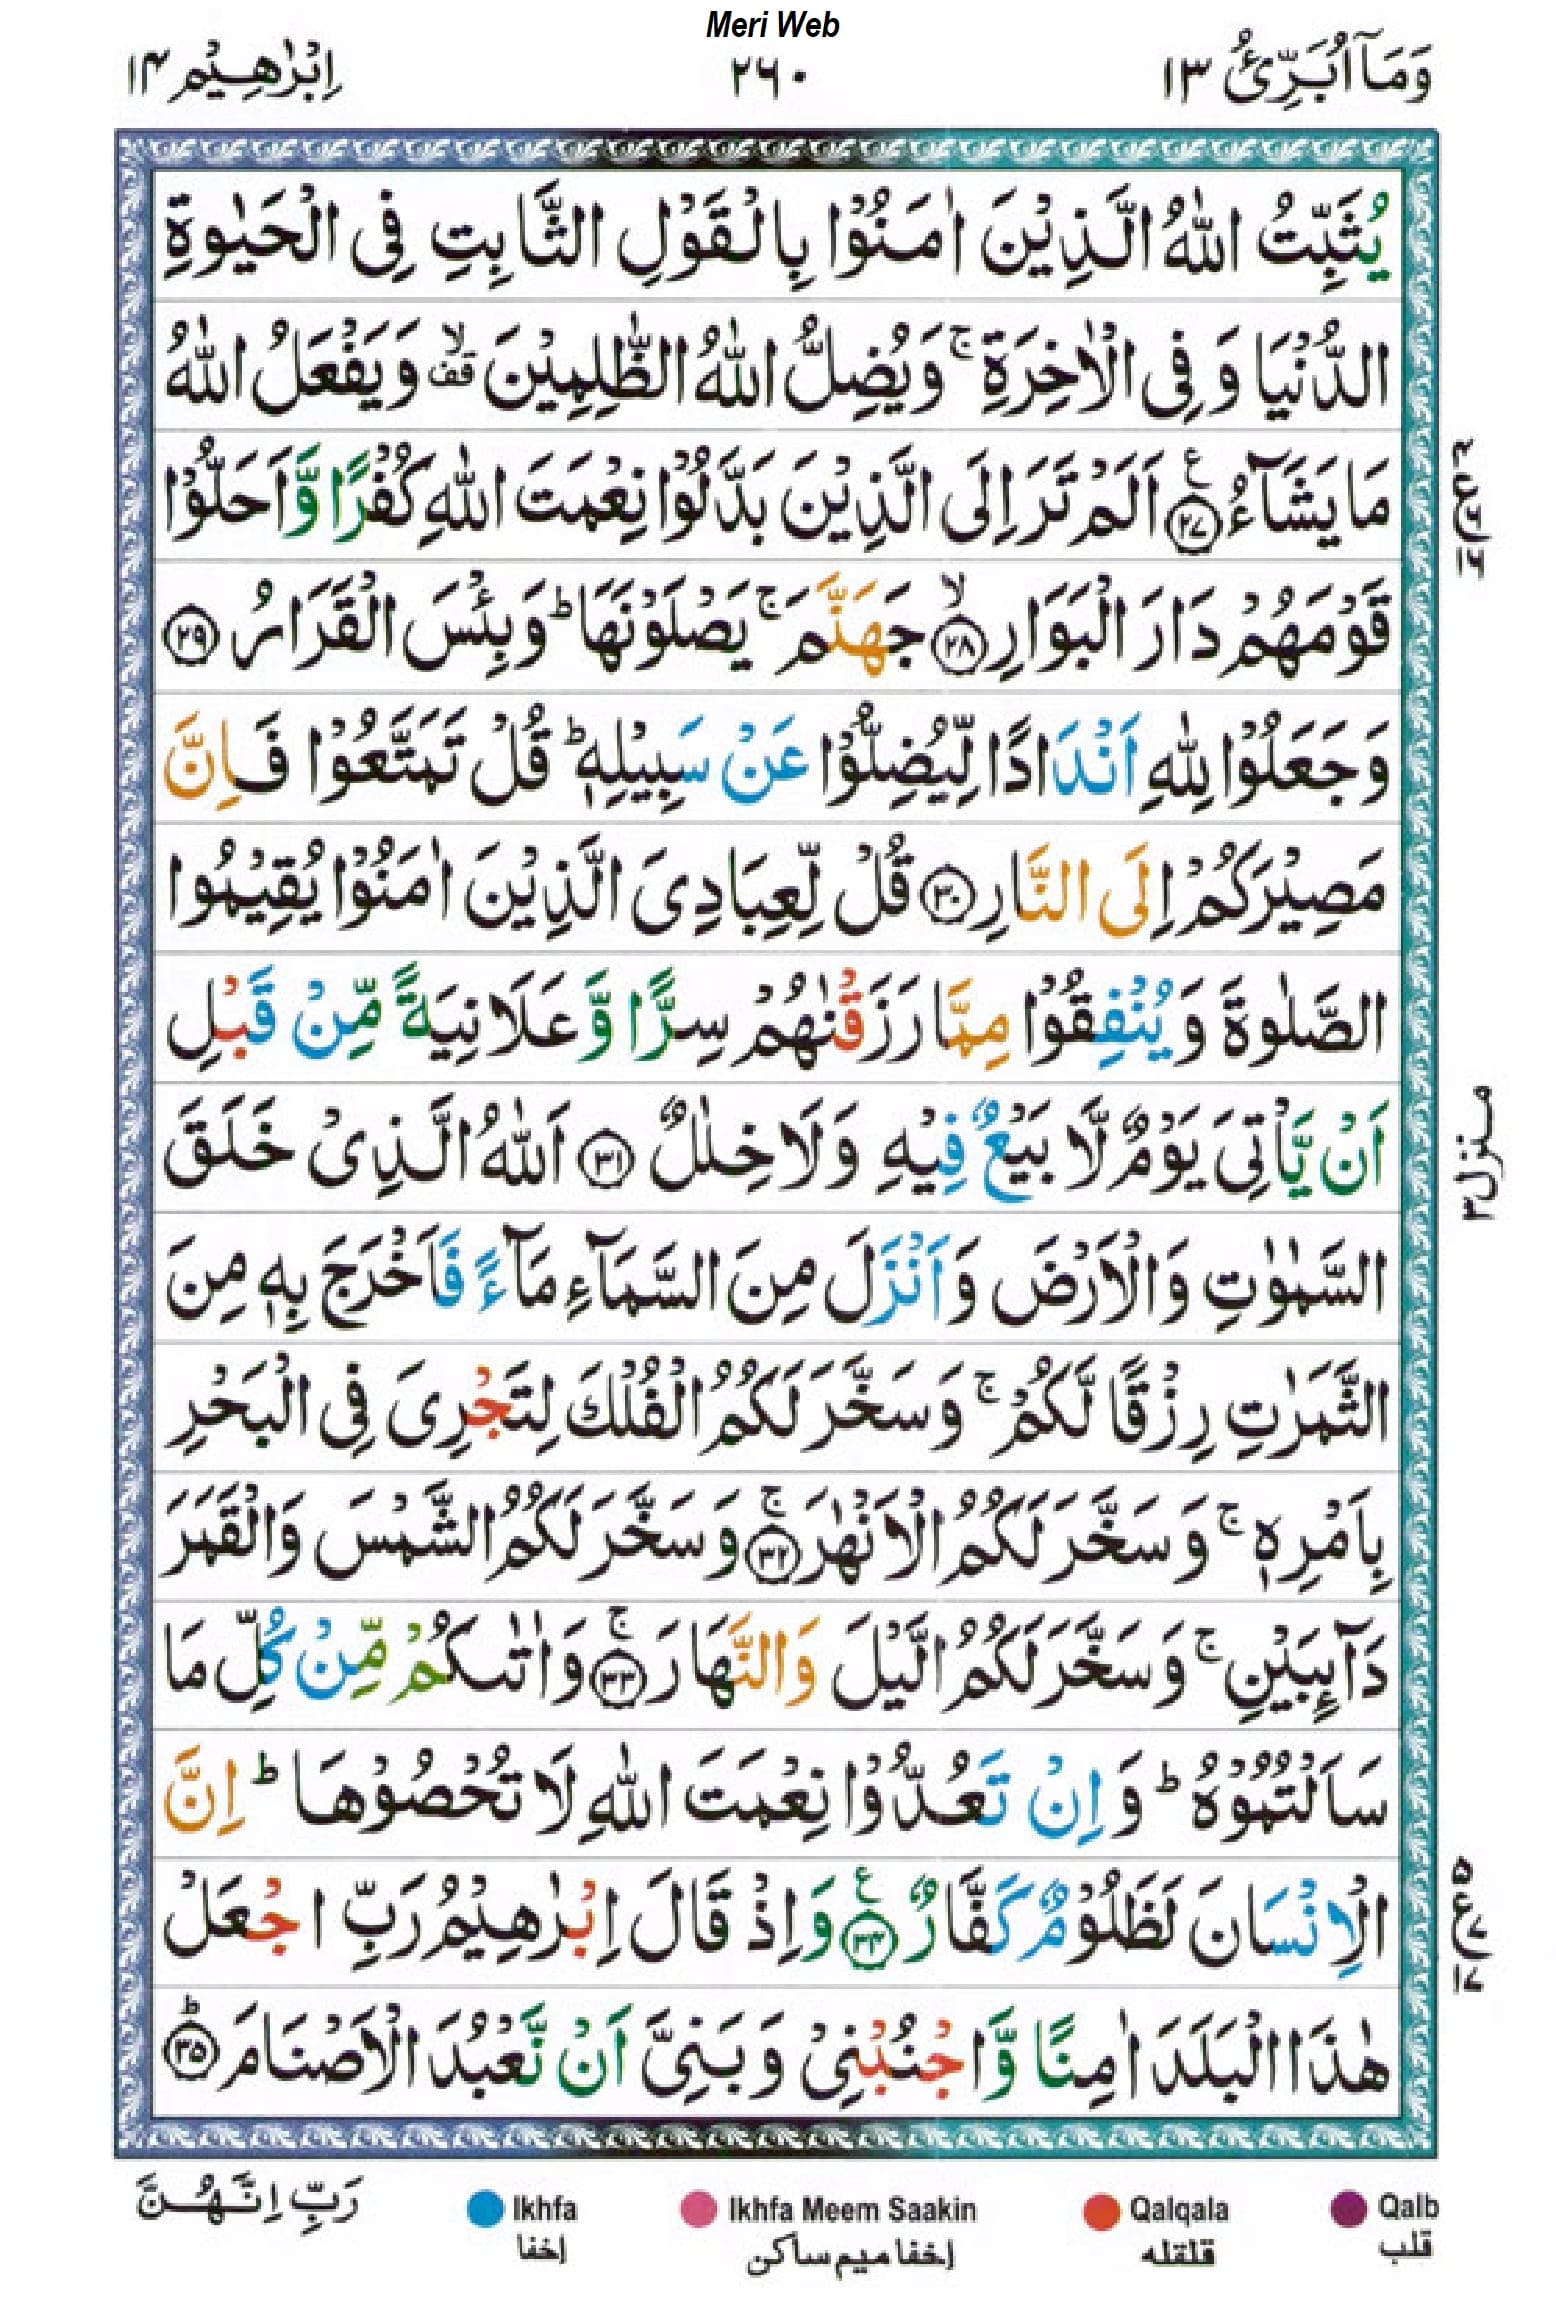 Meri Web
وَمَاۤ اُبَرِّئُ ۱۳ ۲۶۰ اِبْرٰهِيْم ۱۴
يُثَبِّتُ اللّٰهُ الَّذِيْنَ اٰمَنُوْا بِالْقَوْلِ الثَّابِتِ فِى الْحَيٰوةِ
الدُّنْيَا وَ فِى الْاٰخِرَةِ ۚ وَيُضِلُّ اللّٰهُ الظّٰلِمِيْنَ ۙ قف وَيَفْعَلُ اللّٰهُ
مَا يَشَآءُ ﴿۲۷﴾ ع اَلَمْ تَرَ اِلَى الَّذِيْنَ بَدَّلُوْا نِعْمَتَ اللّٰهِ كُفْرًا وَّ اَحَلُّوْا
قَوْمَهُمْ دَارَ الْبَوَارِ ۙ ﴿۲۸﴾ جَهَنَّمَ ۚ يَصْلَوْنَهَا ؕ وَ بِئْسَ الْقَرَارُ ﴿۲۹﴾
وَ جَعَلُوْا لِلّٰهِ اَنْدَادًا لِّيُضِلُّوْا عَنْ سَبِيْلِهٖ ؕ قُلْ تَمَتَّعُوْا فَاِنَّ
مَصِيْرَكُمْ اِلَى النَّارِ ﴿۳۰﴾ قُلْ لِّعِبَادِىَ الَّذِيْنَ اٰمَنُوْا يُقِيْمُوا
الصَّلٰوةَ وَ يُنْفِقُوْا مِمَّا رَزَقْنٰهُمْ سِرًّا وَّ عَلَانِيَةً مِّنْ قَبْلِ
اَنْ يَّاْتِىَ يَوْمٌ لَّا بَيْعٌ فِيْهِ وَلَا خِلٰلٌ ﴿۳۱﴾ اَللّٰهُ الَّذِىْ خَلَقَ
السَّمٰوٰتِ وَالْاَرْضَ وَ اَنْزَلَ مِنَ السَّمَآءِ مَآءً فَاَخْرَجَ بِهٖ مِنَ
الثَّمَرٰتِ رِزْقًا لَّكُمْ ۚ وَ سَخَّرَ لَكُمُ الْفُلْكَ لِتَجْرِىَ فِى الْبَحْرِ
بِاَمْرِهٖ ۚ وَ سَخَّرَ لَكُمُ الْاَنْهٰرَ ۚ ﴿۳۲﴾ وَ سَخَّرَ لَكُمُ الشَّمْسَ وَالْقَمَرَ
دَآئِبَيْنِ ۚ وَ سَخَّرَ لَكُمُ الَّيْلَ وَالنَّهَارَ ۚ ﴿۳۳﴾ وَ اٰتٰىكُمْ مِّنْ كُلِّ مَا
سَاَلْتُمُوْهُ ؕ وَ اِنْ تَعُدُّوْا نِعْمَتَ اللّٰهِ لَا تُحْصُوْهَا ؕ اِنَّ
الْاِنْسَانَ لَظَلُوْمٌ كَفَّارٌ ﴿۳۴﴾ ع وَ اِذْ قَالَ اِبْرٰهِيْمُ رَبِّ اجْعَلْ
هٰذَا الْبَلَدَ اٰمِنًا وَّ اجْنُبْنِىْ وَ بَنِىَّ اَنْ نَّعْبُدَ الْاَصْنَامَ ؕ ﴿۳۵﴾
منزل۳
رَبِّ اِنَّهُنَّ
Ikhfa Ikhfa Meem Saakin Qalqala Qalb
اِخفا اِخفا میم ساکن قلقله قلب